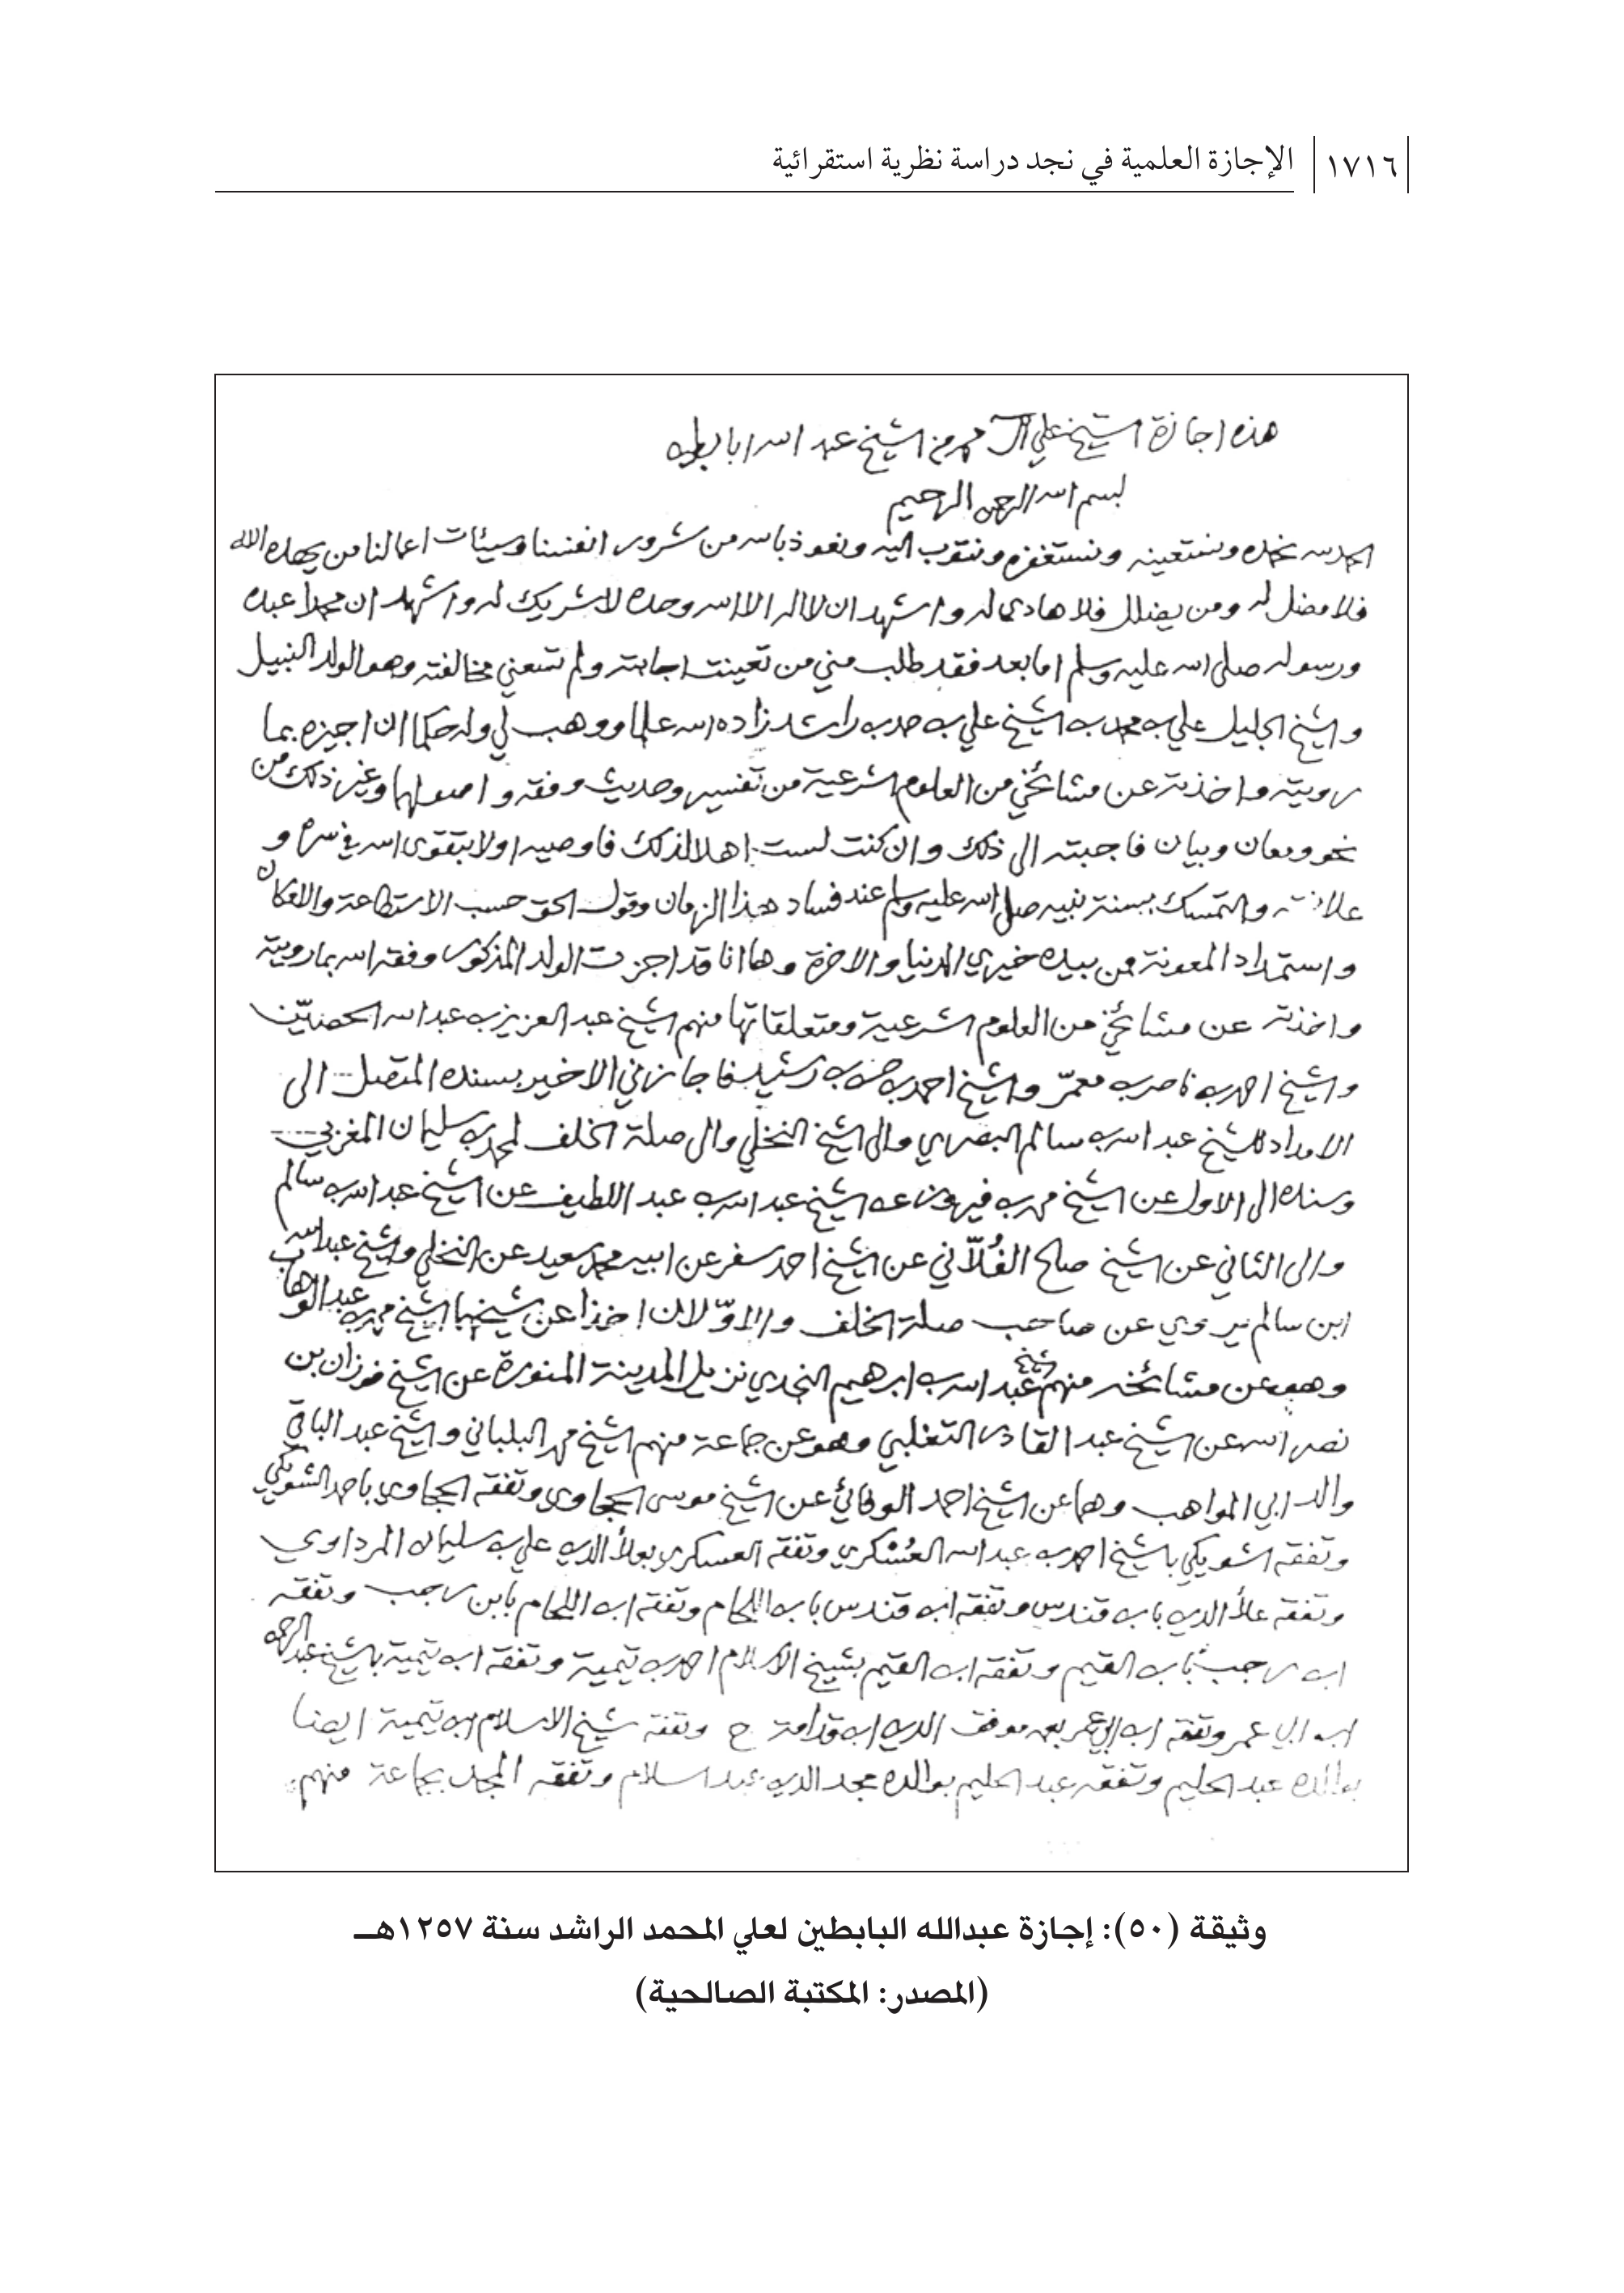 ١٧١٦ الإجازة العلمية في نجد دراسة نظرية استقرائية
هذه اجازة الشيخ علي آل محمد من الشيخ عبد الله ابا بطين
بسم الله الرحمن الرحيم
الحمد لله نحمده ونستعينه ونستغفره ونتوب اليه ونعوذ بالله من شرور انفسنا وسيئات اعمالنا من يهده الله
فلا مضل له ومن يضلل فلا هادي له واشهد ان لا اله الا الله وحده لا شريك له واشهد ان محمدا عبده
ورسوله صلى الله عليه وسلم اما بعد فقد طلب مني من تعينت اجابته ولم تسعني مخالفته وهو الولد النبيل
والشيخ الجليل علي بن محمد بن الشيخ علي بن حمد بن راشد زاده الله علما ووهب لي وله حكما ان اجيزه بما
رويته واخذته عن مشائخي من العلوم الشرعية من تفسير وحديث وفقه واصولها وغير ذلك من
نحو ومعان وبيان فاجبته الى ذلك وان كنت لست اهلا لذلك فاوصيه اولا بتقوى الله في سره و
علانيته والتمسك بسنة نبيه صلى الله عليه وسلم عند فساد هذا الزمان وقول الحق حسب الاستطاعة والامكان
واستمداد المعونة ممن بيده خيري الدنيا والاخرة وها انا قد اجزت الولد المذكور وفقه الله بما رويته
واخذته عن مشائخي من العلوم الشرعية ومتعلقاتها منهم الشيخ عبد العزيز بن عبد الله الحصين
والشيخ احمد بن ناصر بن معمر والشيخ احمد بن حسن بن رشيد فاجازني الاخير بسنده المتصل الى
الامداد للشيخ عبد الله بن سالم البصري والى الشيخ النخلي والى صلة الخلف لمحمد بن سليمان المغربي
وسنده الى الاول عن الشيخ محمد بن فيروز عن الشيخ عبد الله بن عبد اللطيف عن الشيخ عبد الله بن سالم
والى الثاني عن الشيخ صالح الفُلّاني عن الشيخ احمد سفر عن ابيه محمد سعيد عن النخلي والشيخ عبد الله
ابن سالم يروي عن صاحب صلة الخلف والاوّلان اخذا عن شيخهما الشيخ محمد بن عبد الوهاب
وهو عن مشائخه منهم شيخ عبد الله بن ابرهيم النجدي نزيل المدينة المنورة عن الشيخ فوزان بن
نصر الله عن الشيخ عبد القادر التغلبي وهو عن جماعة منهم الشيخ محمد البلباني والشيخ عبد الباقي
والد ابي المواهب وهما عن الشيخ احمد الوفائي عن الشيخ موسى الحجاوي وتفقه الحجاوي باحمد الشويكي
وتفقه الشويكي بالشيخ احمد بن عبد الله العُسْكري وتفقه العسكري بعلاء الدين علي بن سليمان المرداوي
وتفقه علاء الدين بابن قندس وتفقه ابن قندس بابن اللحام وتفقه ابن اللحام بابن رجب وتفقه
ابن رجب بابن القيم وتفقه ابن القيم بشيخ الاسلام احمد بن تيمية وتفقه ابن تيمية بالشيخ عبد الرحمن
ابن ابي عمر وتفقه ابن ابي عمر بعمه موفق الدين ابن قدامة ح وتفقه شيخ الاسلام ابن تيمية ايضا
بوالده عبد الحليم وتفقه عبد الحليم بوالده مجد الدين عبد السلام وتفقه المجد بجماعة منهم
وثيقة (٥٠): إجازة عبدالله البابطين لعلي المحمد الراشد سنة ١٢٥٧هـ
(المصدر: المكتبة الصالحية)